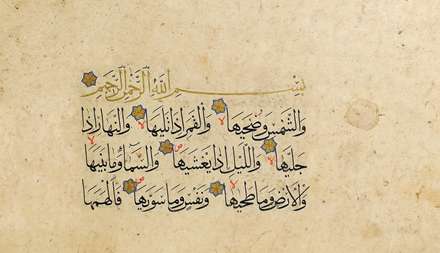 بِسْمِ اللَّهِ الرَّحْمَٰنِ الرَّحِيمِ
وَالشَّمْسِ وَضُحَيهَا وَالْقَمَرِ إِذَا تَلَيهَا وَالنَّهَارِ إِذَا
جَلَّيهَا وَاللَّيْلِ إِذَا يَغْشَيهَا وَالسَّمَاءِ وَمَا بَنَيهَا
وَالْأَرْضِ وَمَا طَحَيهَا وَنَفْسٍ وَمَا سَوَّيهَا فَأَلْهَمَهَا